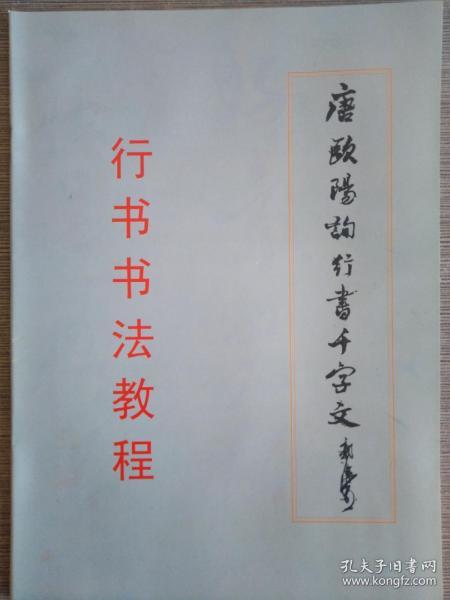 唐歐陽詢行書千字文
行书书法教程
孔夫子旧书网
www.kongfz.com